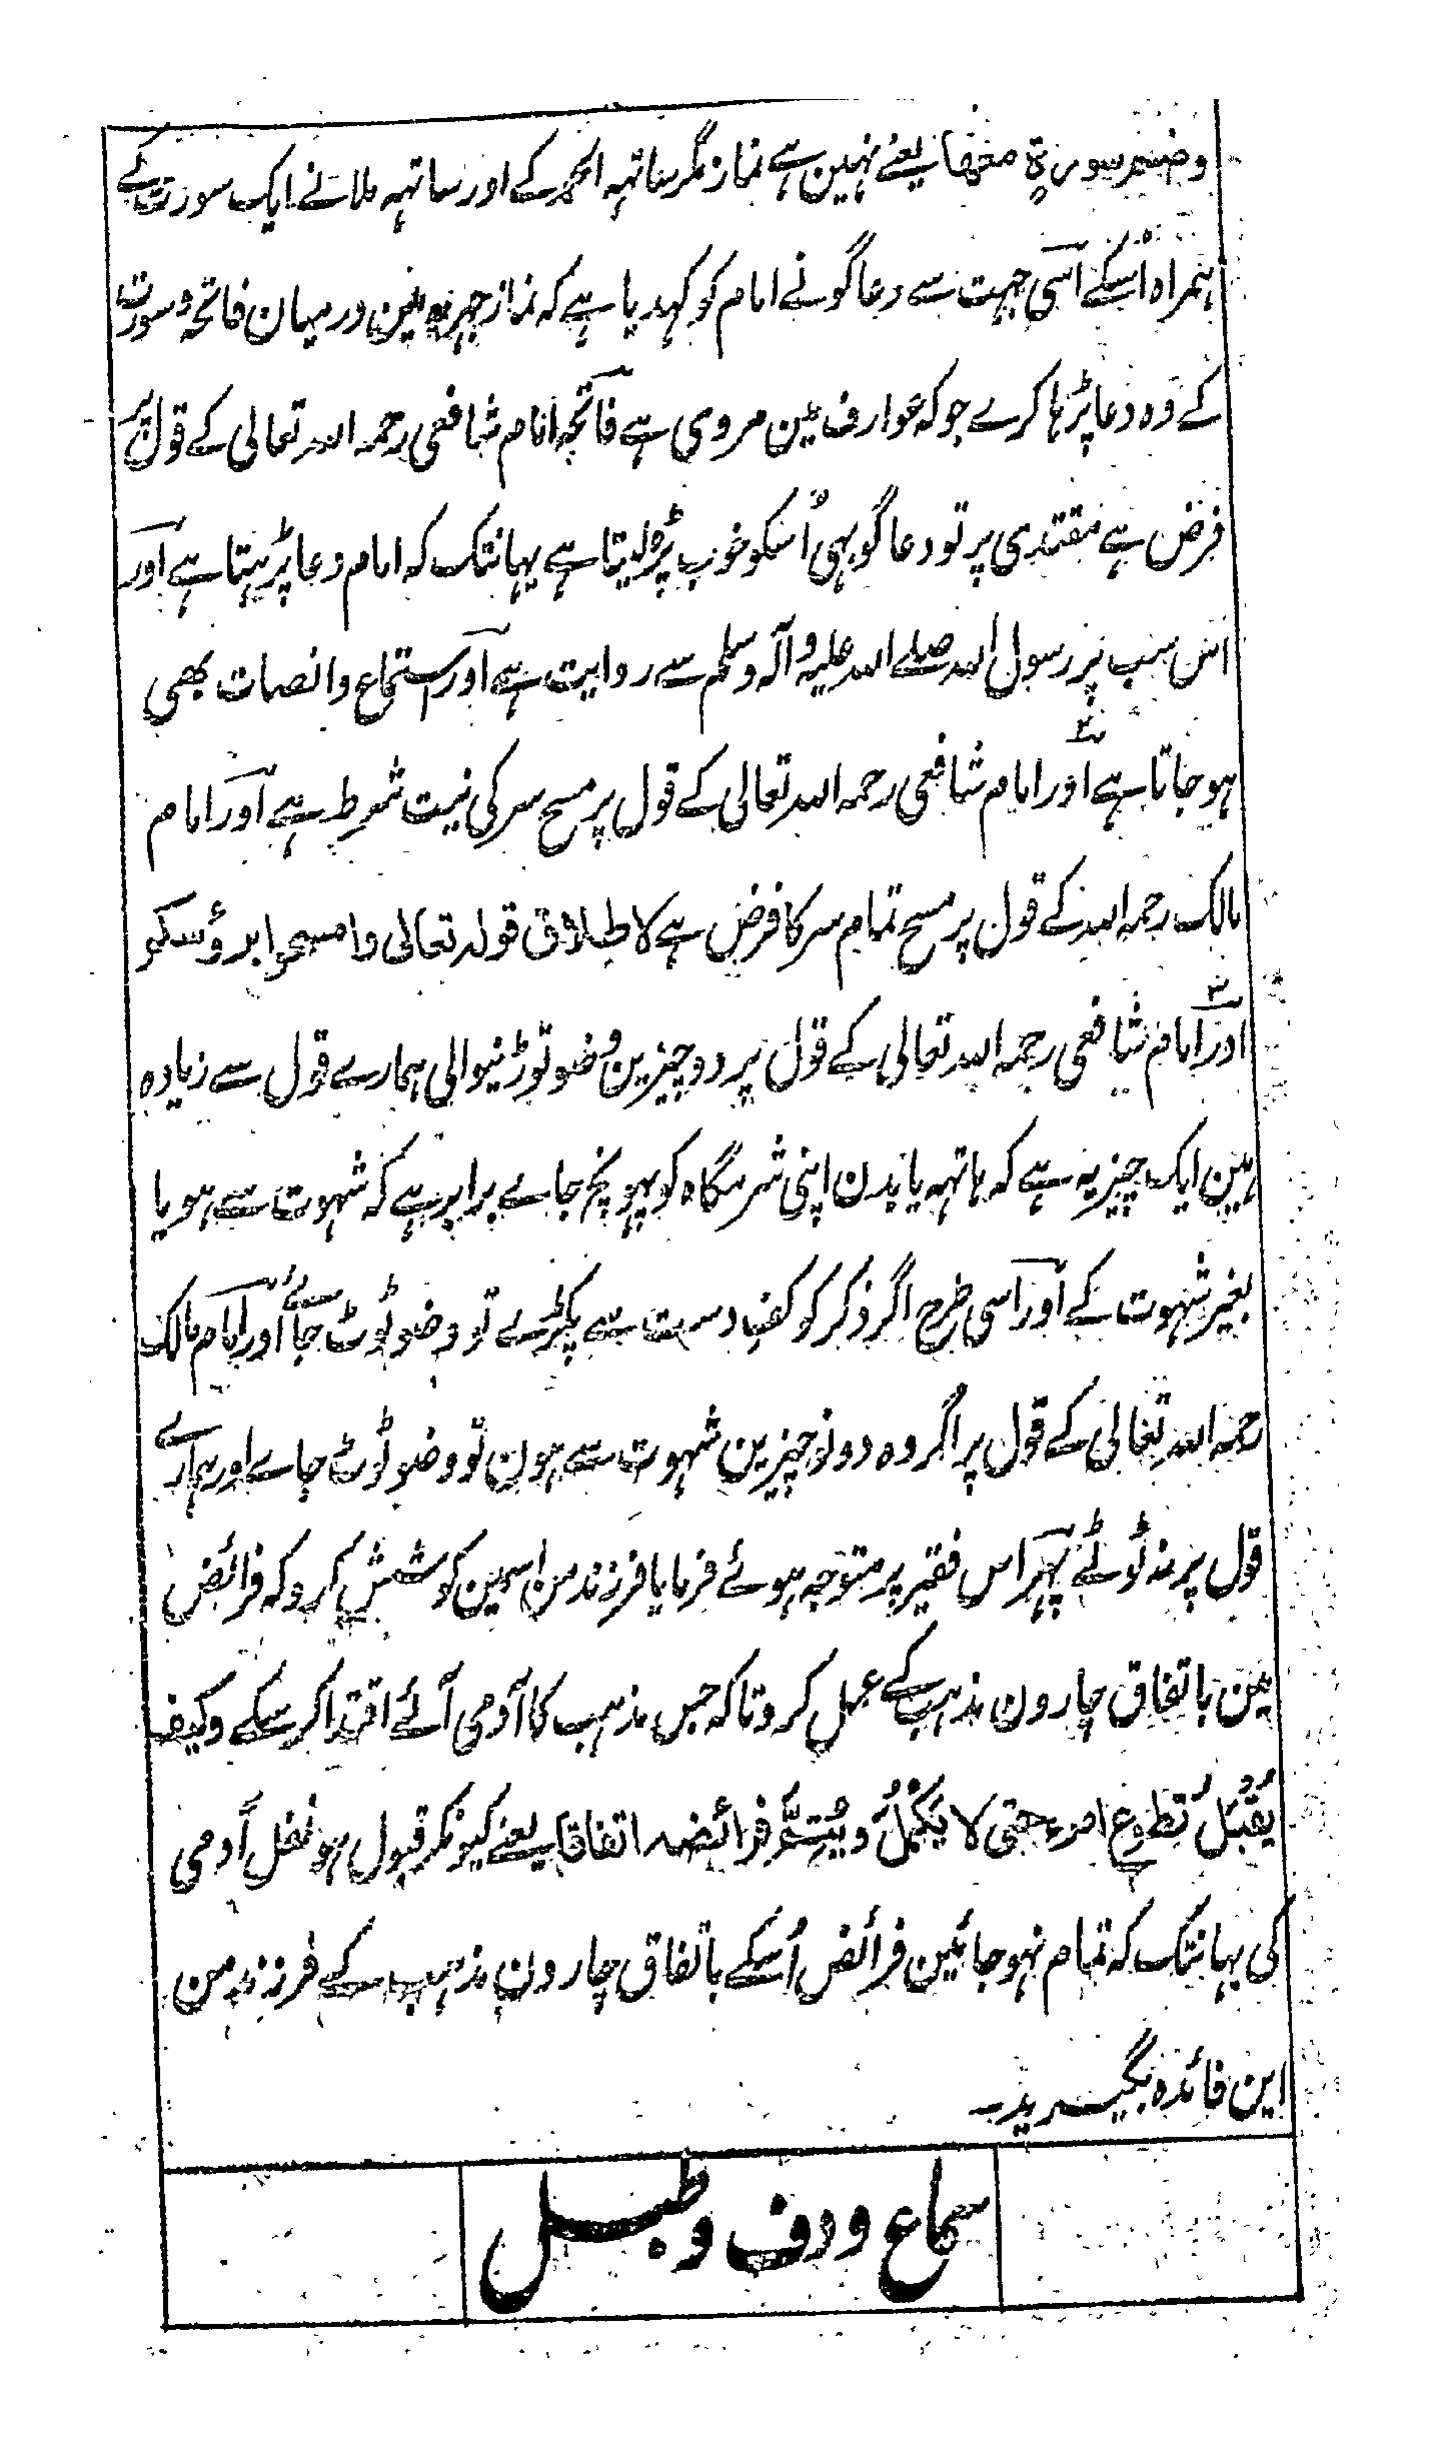 وضم سورة معها یعنے نہین ہے نماز مگر ساتہہ الحمد کے اور ساتہہ ملانے ایک سورت کے
ہمراہ اُسکے اسی جہت سے دعاگو نے امام کو کہدیا ہے کہ نماز جہریہ مین درمیان فاتحہ و سورت
کے وہ دعا پڑہا کرے جو کہ عوارف مین مروی ہے فاتحہ امام شافعی رحمہ اللہ تعالی کے قول پر
فرض ہے مقتدی پر تو دعاگو بہی اُسکو خوب پڑہ لیتا ہے یہانتک کہ امام دعا پڑہتا ہے اور
اس سبب پر رسول اللہ صلے اللہ علیہ وآلہ وسلم سے روایت ہے اور استماع و انصات بھی
ہو جاتا ہے اور امام شافعی رحمہ اللہ تعالی کے قول پر مسح سر کی نیت شرط ہے اور امام
مالک رحمہ اللہ کے قول پر مسح تمام سر کا فرض ہے لاطلاق قولہ تعالی وامسحوا برؤسکو
اور امام شافعی رحمہ اللہ تعالی کے قول پر دو چیزین وضو توڑنیوالی ہمارے قول سے زیادہ
ہین ایک چیز یہ ہے کہ ہاتہہ یا بدن اپنی شرمگاہ کو پہونچ جاے برابر ہے کہ شہوت سے ہو یا
بغیر شہوت کے اور اسی طرح اگر ذکر کو کف دست سے پکڑے تو وضو ٹوٹ جائے اور امام مالک
رحمہ اللہ تعالی کے قول پر اگر وہ دونو چیزین شہوت سے ہون تو وضو ٹوٹ جاے اور ہمارے
قول پر نہ ٹوٹے پہر اس فقیر پر متوجہ ہوئے فرمایا فرزند من اسمین کوشش کرو کہ فرائض
مین باتفاق چارون مذہب کے عمل کرو تاکہ جس مذہب کا آدمی آئے اقتدا کر سکے وکیف
یُقْبَلُ تَطوع امرء حتی لا یَکْمُلُ ویُتِمُّ فرائضہ اتفاقا یعنے کیونکر قبول ہو نفل آدمی
کی یہانتک کہ تمام نہو جائین فرائض اُسکے باتفاق چارون مذہب کے فرزند من
این فائدہ بگیرید۔
سماع و دف و طبل